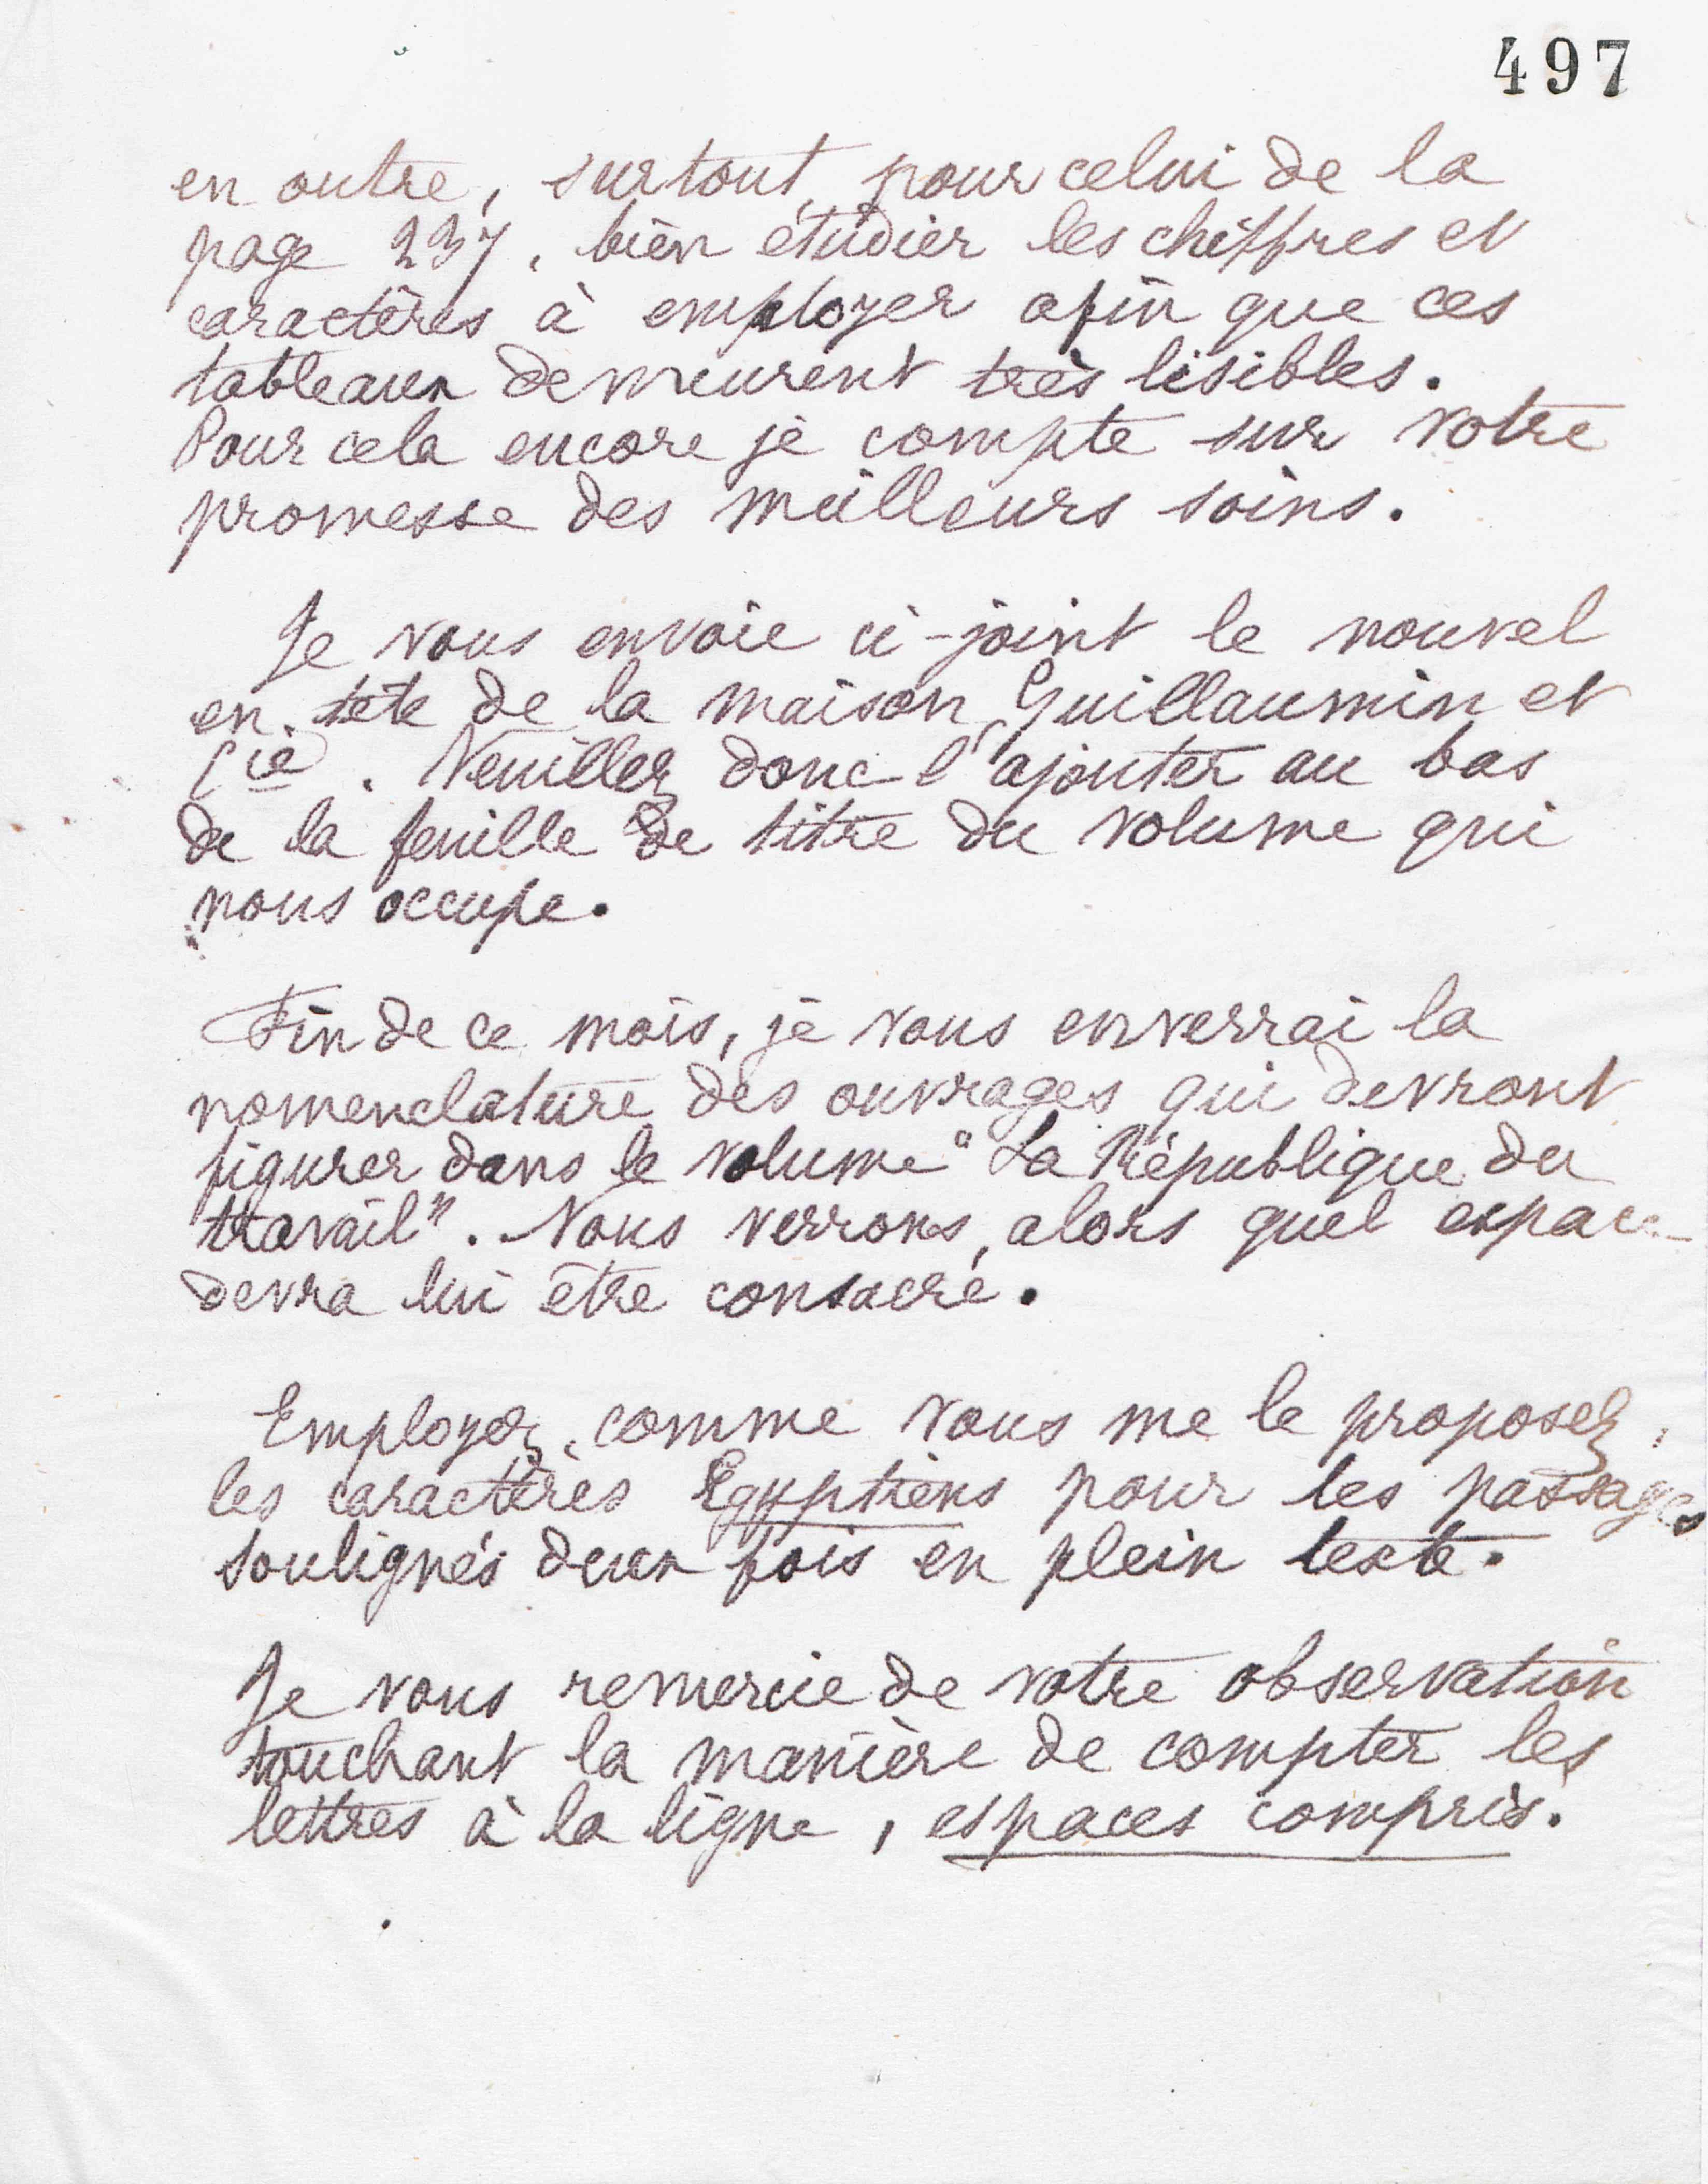 497
en outre, surtout pour celui de la
page 237, bien étudier les chiffres et
caractères à employer afin que ces
tableaux demeurent très lisibles.
Pour cela encore je compte sur votre
promesse des meilleurs soins.
Je vous envoie ci-joint le nouvel
en-tête de la maison Guillaumin et
Cie. Veuillez donc l'ajouter au bas
de la feuille de titre du volume qui
nous occupe.
Fin de ce mois, je vous enverrai la
nomenclature des ouvrages qui devront
figurer dans le volume "La République du
travail". Nous verrons, alors quel espace
devra lui être consacré.
Employez, comme vous me le proposez,
les caractères Egyptiens pour les passages
soulignés deux fois en plein texte.
Je vous remercie de votre observation
touchant la manière de compter les
lettres à la ligne, espaces compris.